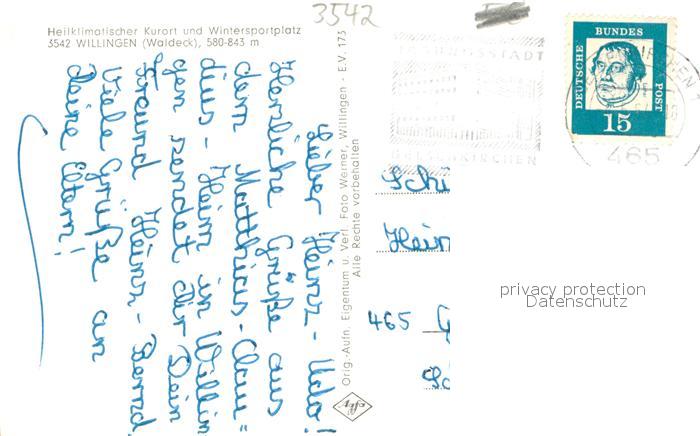 3542
Heilklimatischer Kurort und Wintersportplatz
3542 WILLINGEN (Waldeck), 580-843 m
Lieber Heinz-Udo!
Herzliche Grüße aus
dem Matthias-Clau=
dius-Heim in Willin
gen sendet Dir Dein
Freund Heinz-Bernd.
Viele Grüße an
Deine Eltern!
Orig.-Aufn. Eigentum u. Verl. Foto Werner, Willingen - E.V. 173
Alle Rechte vorbehalten
Agfa
TAGUNGSSTADT
GELSENKIRCHEN
DEUTSCHE
BUNDES
POST
15
465
Schü
Hein
465 G
privacy protection
Datenschutz